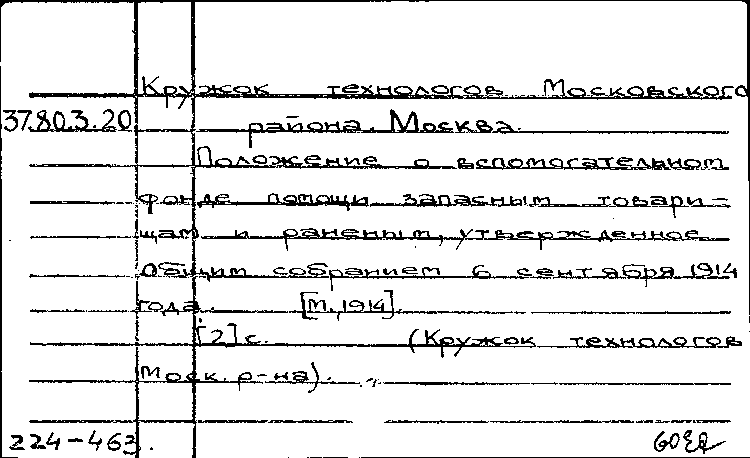 Кружок технологов Московского
37.80.3.20 района. Москва.
Положение о вспомогательном
фонде помощи запасным товари-
щам и раненым, утвержденное
Общим собранием 6 сентября 1914
года. [М., 1914].
[2] с. (Кружок технологов
Моск. р-на).
224-463.